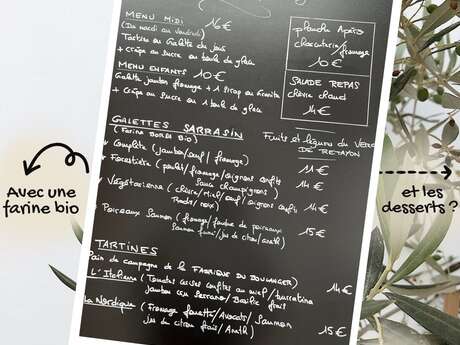 MENU MIDI 16€
(Du mardi au vendredi)
Tartine ou Galette du jour
+ Crêpe au sucre ou 1 boule de glace
MENU ENFANTS 10€
Galette jambon fromage + 1 sirop ou
+ Crêpe au sucre ou 1 boule de glace
planche Apéro
charcuterie/fromage
10€
SALADE REPAS
chèvre chaud
14€
GALETTES SARRASIN
(Farine BORSA Bio)
Fruits et légumes du
DE RETAYON
Complète (jambon/oeuf/fromage) 11€
Forestière (poulet/fromage/oignons confits
champignons) 14€
Végétarienne (chèvre/miel/oeuf/oignons confits
noix) 14€
Poireaux Saumon (fromage/fondue de poireaux
Saumon fumé/jus de citron/aneth) 15€
TARTINES
Pain de campagne de la FABRIQUE DU BOULANGER)
L'Italienne (Tomates cerises confites au miel/burratina
jambon cru Serrano/Basilic frais 14€
La Nordique (Fromage fouetté/Avocats/Saumon
jus de citron frais/Aneth) 15€
Avec une
farine bio
et les
desserts ?